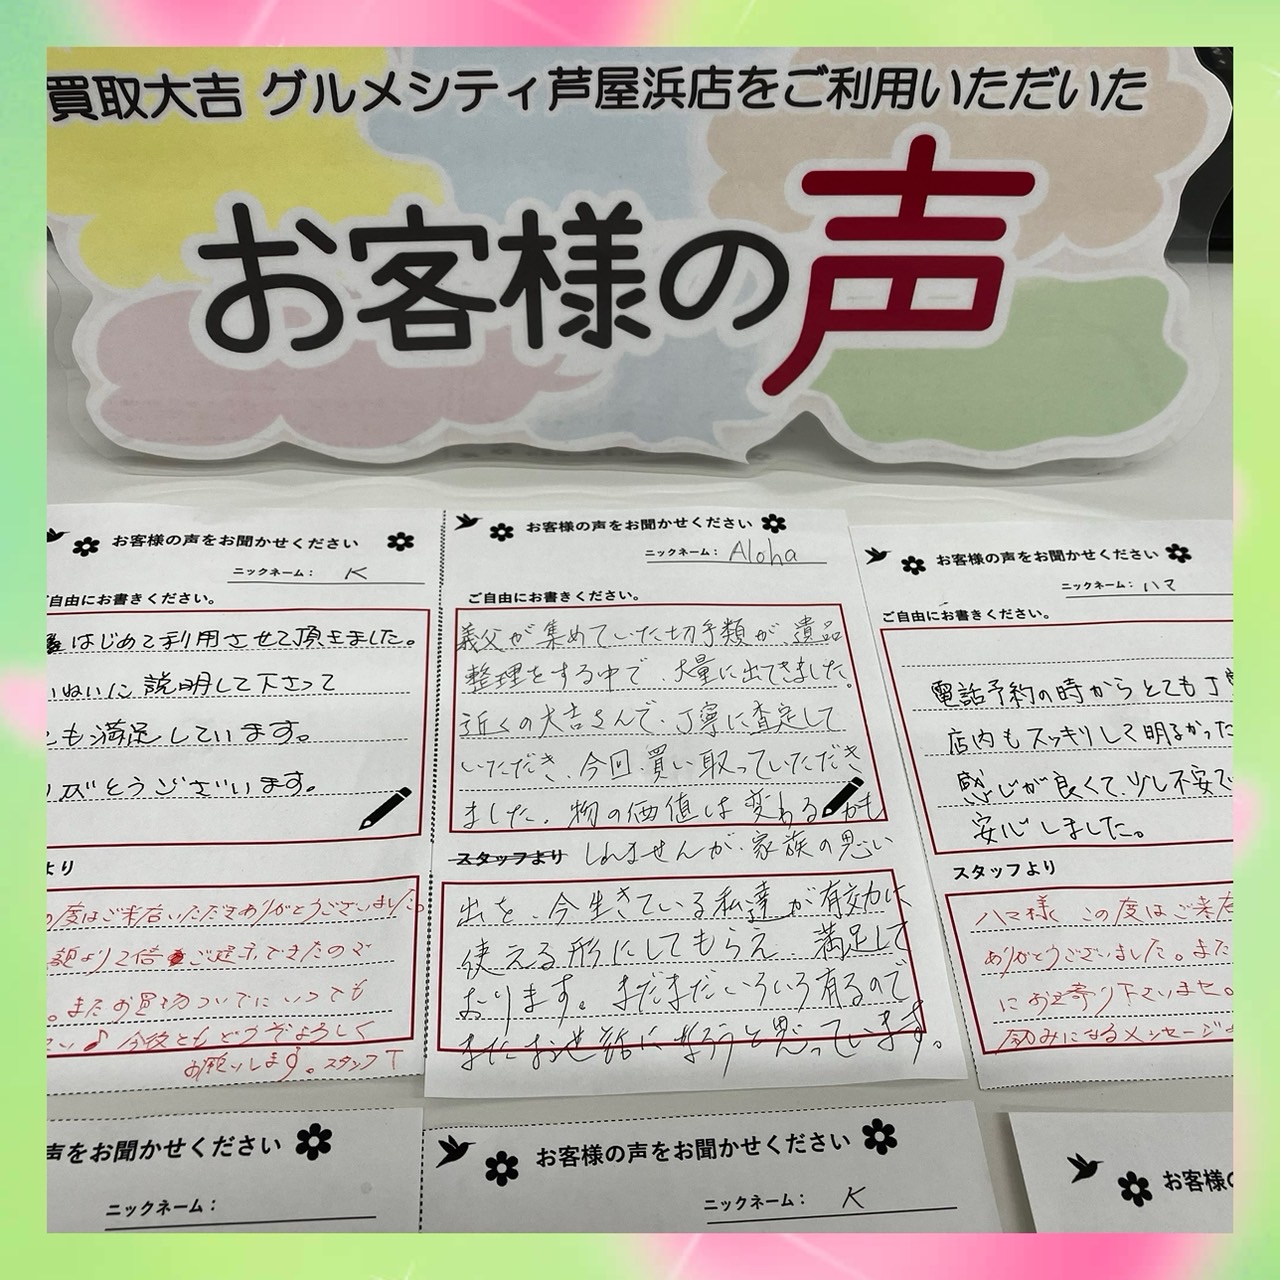 買取大吉 グルメシティ芦屋浜店をご利用いただいた
お客様の声
お客様の声をお聞かせください
ニックネーム: K
ご自由にお書きください。
はじめて利用させて頂きました。
いねいに 説明して下さって
も満足しています。
がとうございます。
より
の度はご来店いただきありがとうございました。
額より2倍ご提示できたので
。またお買物ついでにいつでも
さい♪ 今後ともどうぞよろしく
お願いします。スタッフT
お客様の声をお聞かせください
ニックネーム: Aloha
ご自由にお書きください。
義父が集めていた切手類が、遺品
整理をする中で、大量に出てきました。
近くの大吉さんで、丁寧に査定して
いただき、今回、買い取っていただき
ました。物の価値は変わるかも
スタッフより しれませんが、家族の思い
出を、今生きている私達が有効に
使える形にしてもらえ、満足して
おります。まだまだいろいろ有るので
またお世話になろうと思っています。
お客様の声をお聞かせください
ニックネーム: ハマ
ご自由にお書きください。
電話予約の時からとても丁寧
店内もスッキリして明るかった
感じが良くて、少し不安で
安心しました。
スタッフより
ハマ様 この度はご来店
ありがとうございました。また
にお立寄り下さいませ。
励みになるメッセージ
声をお聞かせください
ニックネーム:
お客様の声をお聞かせください
ニックネーム: K
お客様の